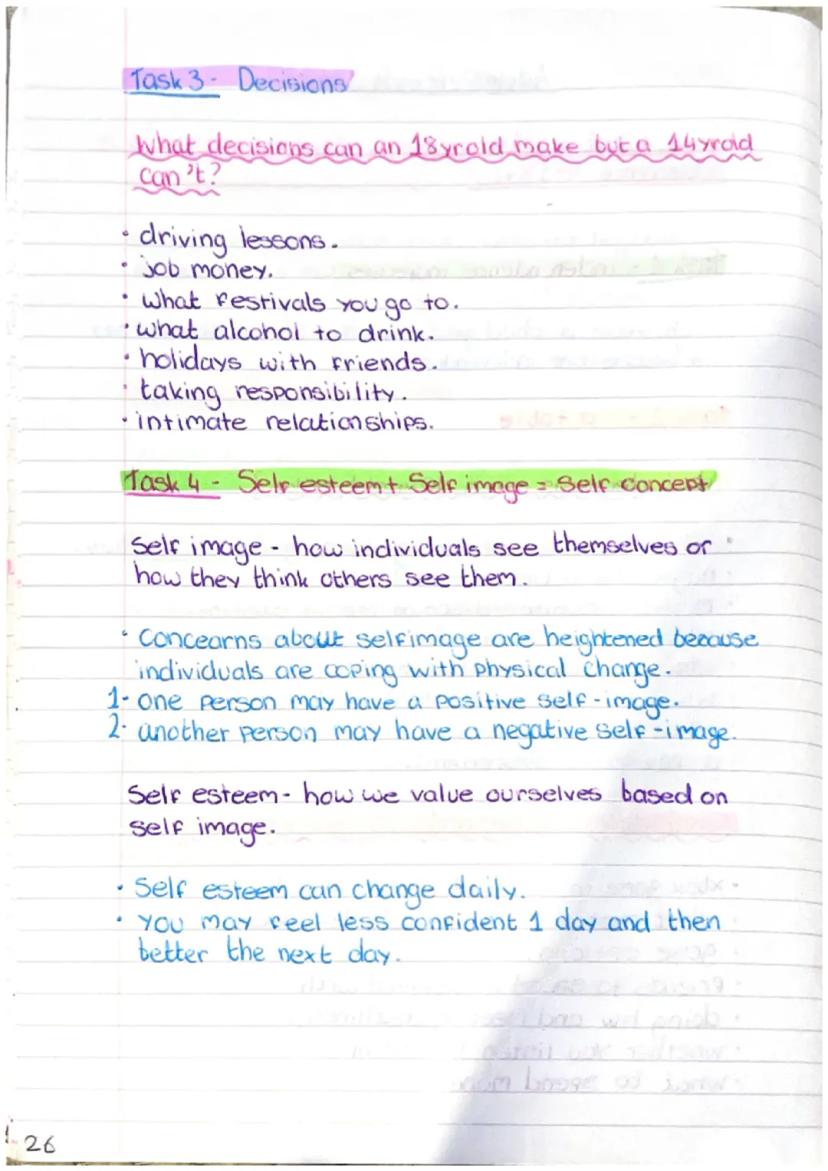 Task 3 - Decisions
What decisions can an 18yrold make but a 14yrold
can't?
• driving lessons.
• job money.
• what festivals you go to.
• what alcohol to drink.
• holidays with friends.
• taking responsibility.
• intimate relationships.
Task 4 - Self esteem + Self image = Self concept
Self image - how individuals see themselves or
how they think others see them.
• Concearns about selfimage are heightened because
individuals are coping with physical change.
1- one person may have a positive self-image.
2- another person may have a negative self-image.
Self esteem - how we value ourselves based on
self image.
• Self esteem can change daily.
• you may feel less confident 1 day and then
better the next day.
26